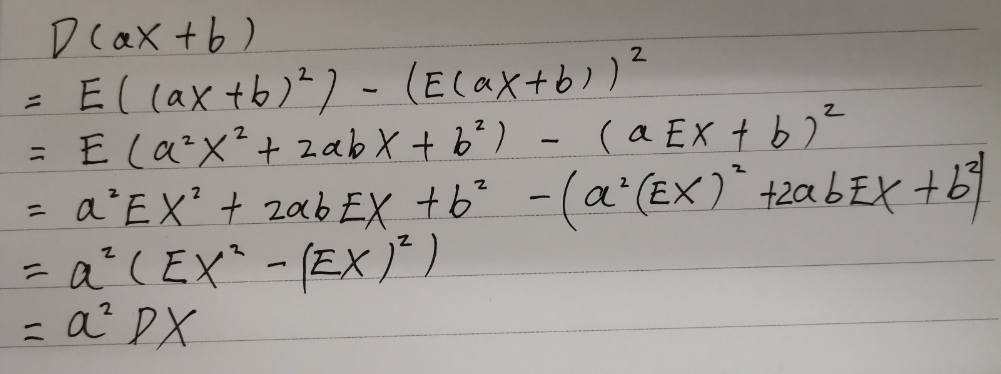 D(aX+b)
= E((aX+b)²) - (E(aX+b))²
= E(a²X²+2abX+b²) - (aEX+b)²
= a²EX²+2abEX+b² -(a²(EX)²+2abEX+b²)
= a²(EX²-(EX)²)
= a²DX